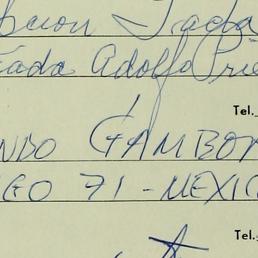 Tada
ada Adolfo Prie
Tel.
NDO GAMBOA
GO 71 - MEXIC
Tel.